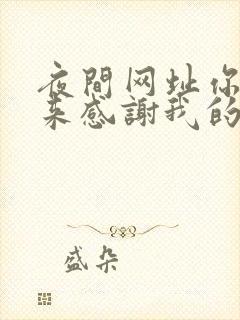 夜間网址你
来感謝我的
盛朵